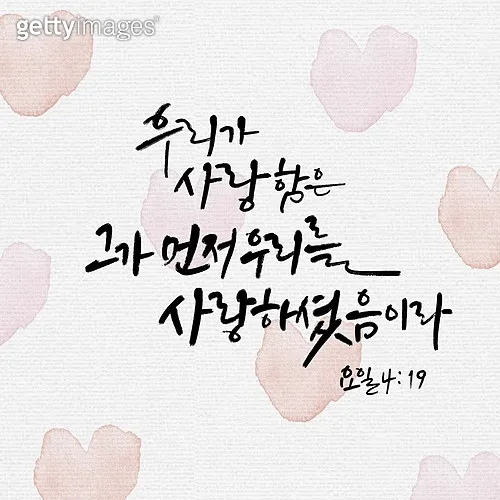 gettyimages®
우리가
사랑함은
그가 먼저 우리를
사랑하셨음이라
요일 4:19